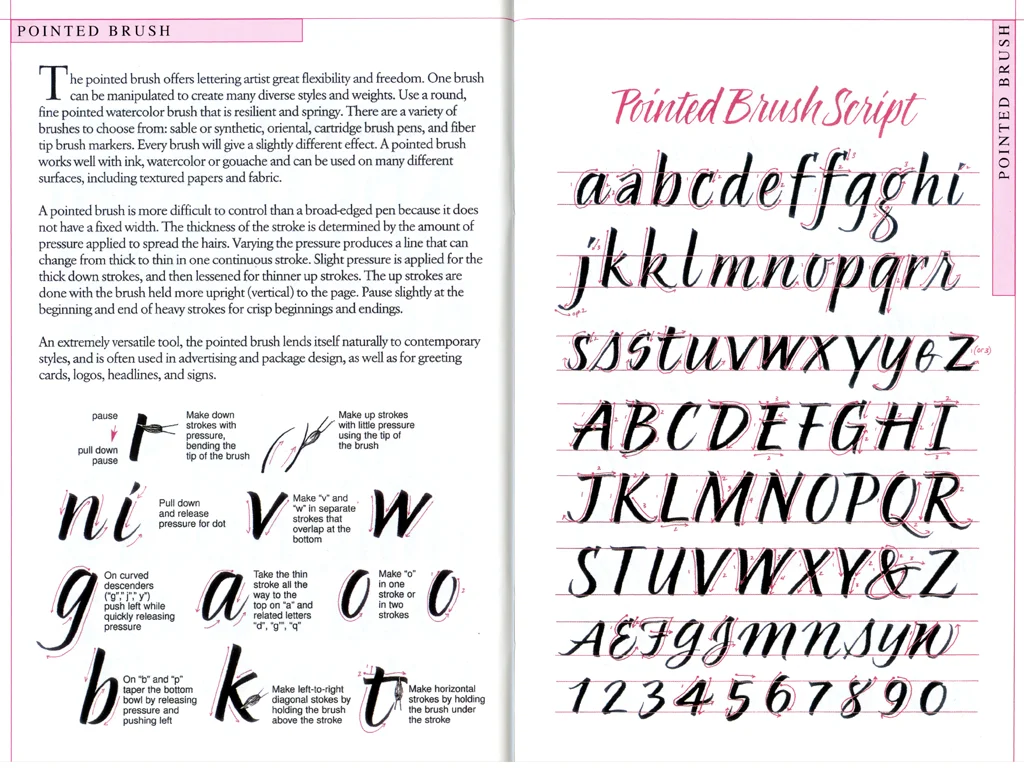 POINTED BRUSH
The pointed brush offers lettering artist great flexibility and freedom. One brush
can be manipulated to create many diverse styles and weights. Use a round,
fine pointed watercolor brush that is resilient and springy. There are a variety of
brushes to choose from: sable or synthetic, oriental, cartridge brush pens, and fiber
tip brush markers. Every brush will give a slightly different effect. A pointed brush
works well with ink, watercolor or gouache and can be used on many different
surfaces, including textured papers and fabric.
A pointed brush is more difficult to control than a broad-edged pen because it does
not have a fixed width. The thickness of the stroke is determined by the amount of
pressure applied to spread the hairs. Varying the pressure produces a line that can
change from thick to thin in one continuous stroke. Slight pressure is applied for the
thick down strokes, and then lessened for thinner up strokes. The up strokes are
done with the brush held more upright (vertical) to the page. Pause slightly at the
beginning and end of heavy strokes for crisp beginnings and endings.
An extremely versatile tool, the pointed brush lends itself naturally to contemporary
styles, and is often used in advertising and package design, as well as for greeting
cards, logos, headlines, and signs.
pause
pull down
pause
Make down
strokes with
pressure,
bending the
tip of the brush
Make up strokes
with little pressure
using the tip of
the brush
n i
Pull down
and release
pressure for dot
v
Make "v" and
"w" in separate
strokes that
overlap at the
bottom
w
g
On curved
descenders
("g", "j", "y")
push left while
quickly releasing
pressure
a
Take the thin
stroke all the
way to the
top on "a" and
related letters
"d", "g"", "q"
o
Make "o"
in one
stroke or
in two
strokes
o
b
On "b" and "p"
taper the bottom
bowl by releasing
pressure and
pushing left
k
Make left-to-right
diagonal stokes by
holding the brush
above the stroke
t
Make horizontal
strokes by holding
the brush under
the stroke
POINTED BRUSH
Pointed Brush Script
a a b c d e f f g g h i
j k k l m n o p q r r
s s s t u v w x y y z z (or 3)
A B C D E F G H I
J K L M N O P Q R
S T U V W X Y & Z
A E F G J M N S Y W
1 2 3 4 5 6 7 8 9 0